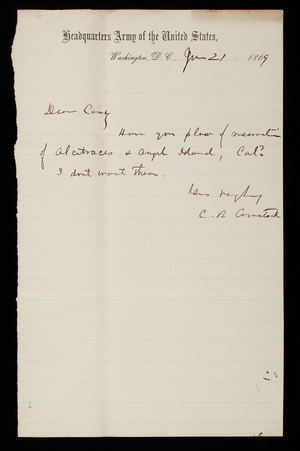 Headquarters Army of the United States,
Washington, D.C., Jan 21 1869
Dear Casey
Have you plans of reservation
of Alcatraces & Angel Island, Cal?
I dont want them.
C. B. Comstock